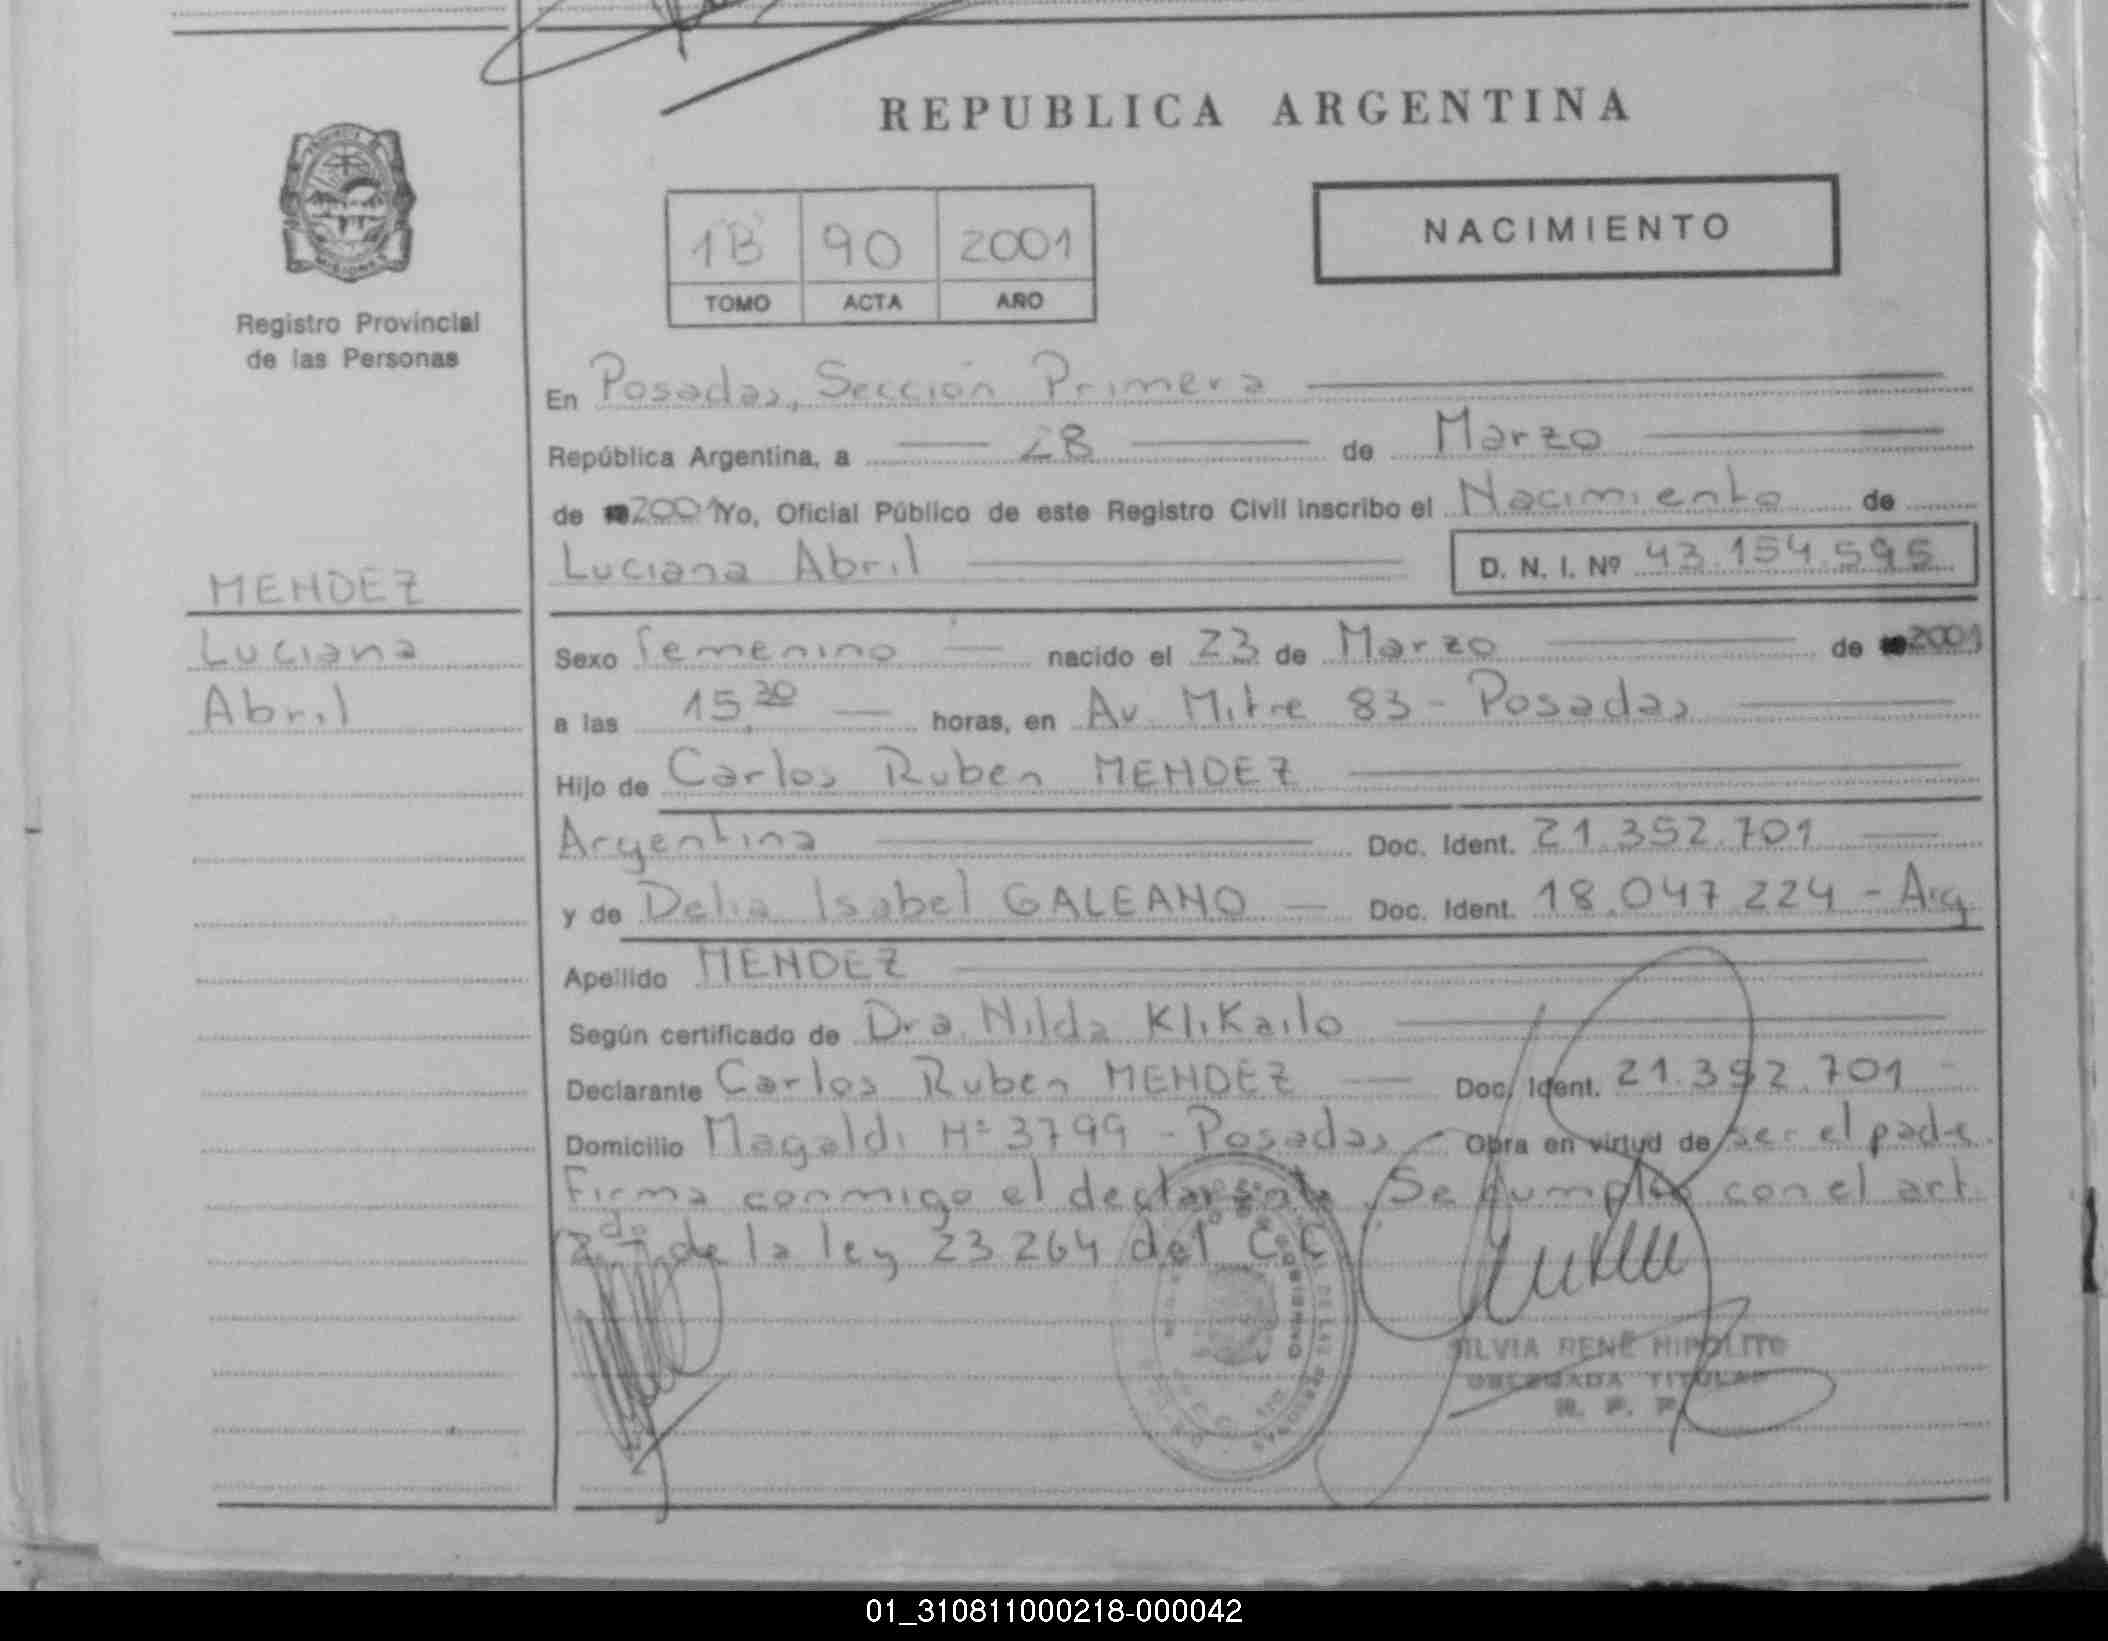 REPUBLICA ARGENTINA
1B 90 2001
TOMO ACTA AÑO
NACIMIENTO
MISIONES
Registro Provincial
de las Personas
En Posadas, Sección Primera
República Argentina, a 28 de Marzo
de 2001 Yo, Oficial Público de este Registro Civil inscribo el Nacimiento de
Luciana Abril D. N. I. Nº 43.154.595
MENDEZ
Luciana
Abril
Sexo femenino nacido el 23 de Marzo de 2001
a las 15,30 horas, en Av. Mitre 83 - Posadas
Hijo de Carlos Ruben MENDEZ
Argentina Doc. Ident. 21.352.701
y de Delia Isabel GALEANO Doc. Ident. 18.047.224 - Arg
Apellido MENDEZ
Según certificado de Dra. Nilda Klikailo
Declarante Carlos Ruben MENDEZ Doc. Ident. 21.392.701
Domicilio Magaldi Nº 3799 - Posadas - Obra en virtud de ser el padre.
Firma conmigo el declarante. Se cumplió con el art.
2do de la ley 23.264 del C.C.
SILVIA RENÉ HIPOLITO
DELEGADA TITULAR
R. P. P.
01_310811000218-000042